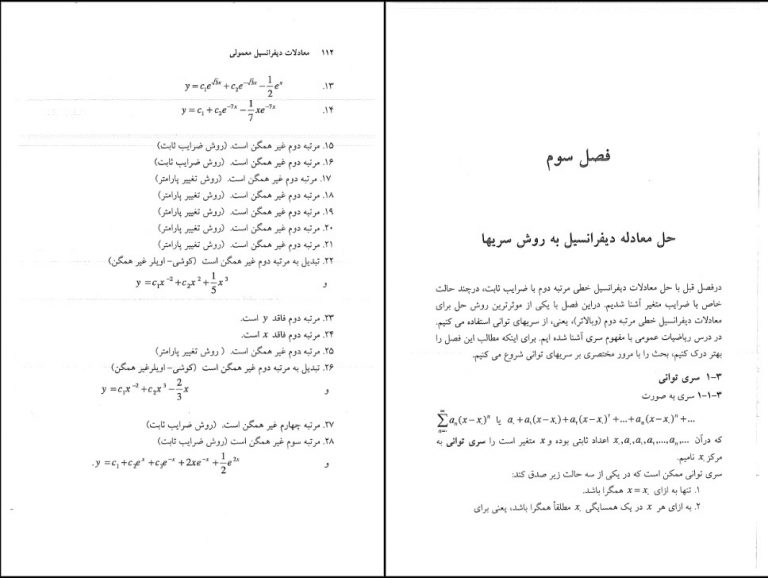 ۱۱۲ معادلات دیفرانسیل معمولی
۱۳. y = c₁e^{√3x} + c₂e^{-√3x} - 1/2 e^x
۱۴. y = c₁ + c₂e^{-7x} - 1/7 xe^{-7x}
۱۵. مرتبه دوم غیر همگن است. (روش ضرایب ثابت)
۱۶. مرتبه دوم غیر همگن است. (روش ضرایب ثابت)
۱۷. مرتبه دوم غیر همگن است. (روش تغییر پارامتر)
۱۸. مرتبه دوم غیر همگن است. (روش تغییر پارامتر)
۱۹. مرتبه دوم غیر همگن است. (روش تغییر پارامتر)
۲۰. مرتبه دوم غیر همگن است. (روش تغییر پارامتر)
۲۱. مرتبه دوم غیر همگن است. (روش تغییر پارامتر)
۲۲. تبدیل به مرتبه دوم غیر همگن است (کوشی- اویلر غیر همگن)
و y = c₁x^{-2} + c₂x^2 + 1/5 x^3
۲۳. مرتبه دوم فاقد y است.
۲۴. مرتبه دوم فاقد x است.
۲۵. مرتبه دوم غیر همگن است. ( روش تغییر پارامتر)
۲۶. تبدیل به مرتبه دوم غیر همگن است (کوشی- اویلرغیر همگن)
و y = c₁x^{-2} + c₂x^3 - 2/3 x
۲۷. مرتبه چهارم غیر همگن است. (روش ضرایب ثابت)
۲۸. مرتبه سوم غیر همگن است (روش ضرایب ثابت)
و y = c₁ + c₂e^x + c₃e^{-x} + 2xe^{-x} + 1/2 e^{2x}.
فصل سوم
حل معادله دیفرانسیل به روش سریها
درفصل قبل با حل معادلات دیفرانسیل خطی مرتبه دوم با ضرایب ثابت، درچند حالت
خاص با ضرایب متغیر آشنا شدیم. دراین فصل با یکی از موثرترین روش حل برای
معادلات دیفرانسیل خطی مرتبه دوم (وبالاتر)، یعنی، از سریهای توانی استفاده می کنیم.
در درس ریاضیات عمومی با مفهوم سری آشنا شده ایم. برای اینکه مطالب این فصل را
بهتر درک کنیم، بحث را با مرور مختصری بر سریهای توانی شروع می کنیم.
۳-۱ سری توانی
۳-۱-۱ سری به صورت
a.+a₁(x-x.)+a₂(x-x.)^۲+...+aₙ(x-x.)^n+... یا ∑aₙ(x-x.)^n
که درآن x.,a.,a₁,a₂,...,aₙ,... اعداد ثابتی بوده و x متغیر است را سری توانی به
مرکز x. نامیم.
سری توانی ممکن است که در یکی از سه حالت زیر صدق کند:
۱. تنها به ازای x = x. همگرا باشد.
۲. به ازای هر x در یک همسایگی x. مطلقاً همگرا باشد، یعنی برای